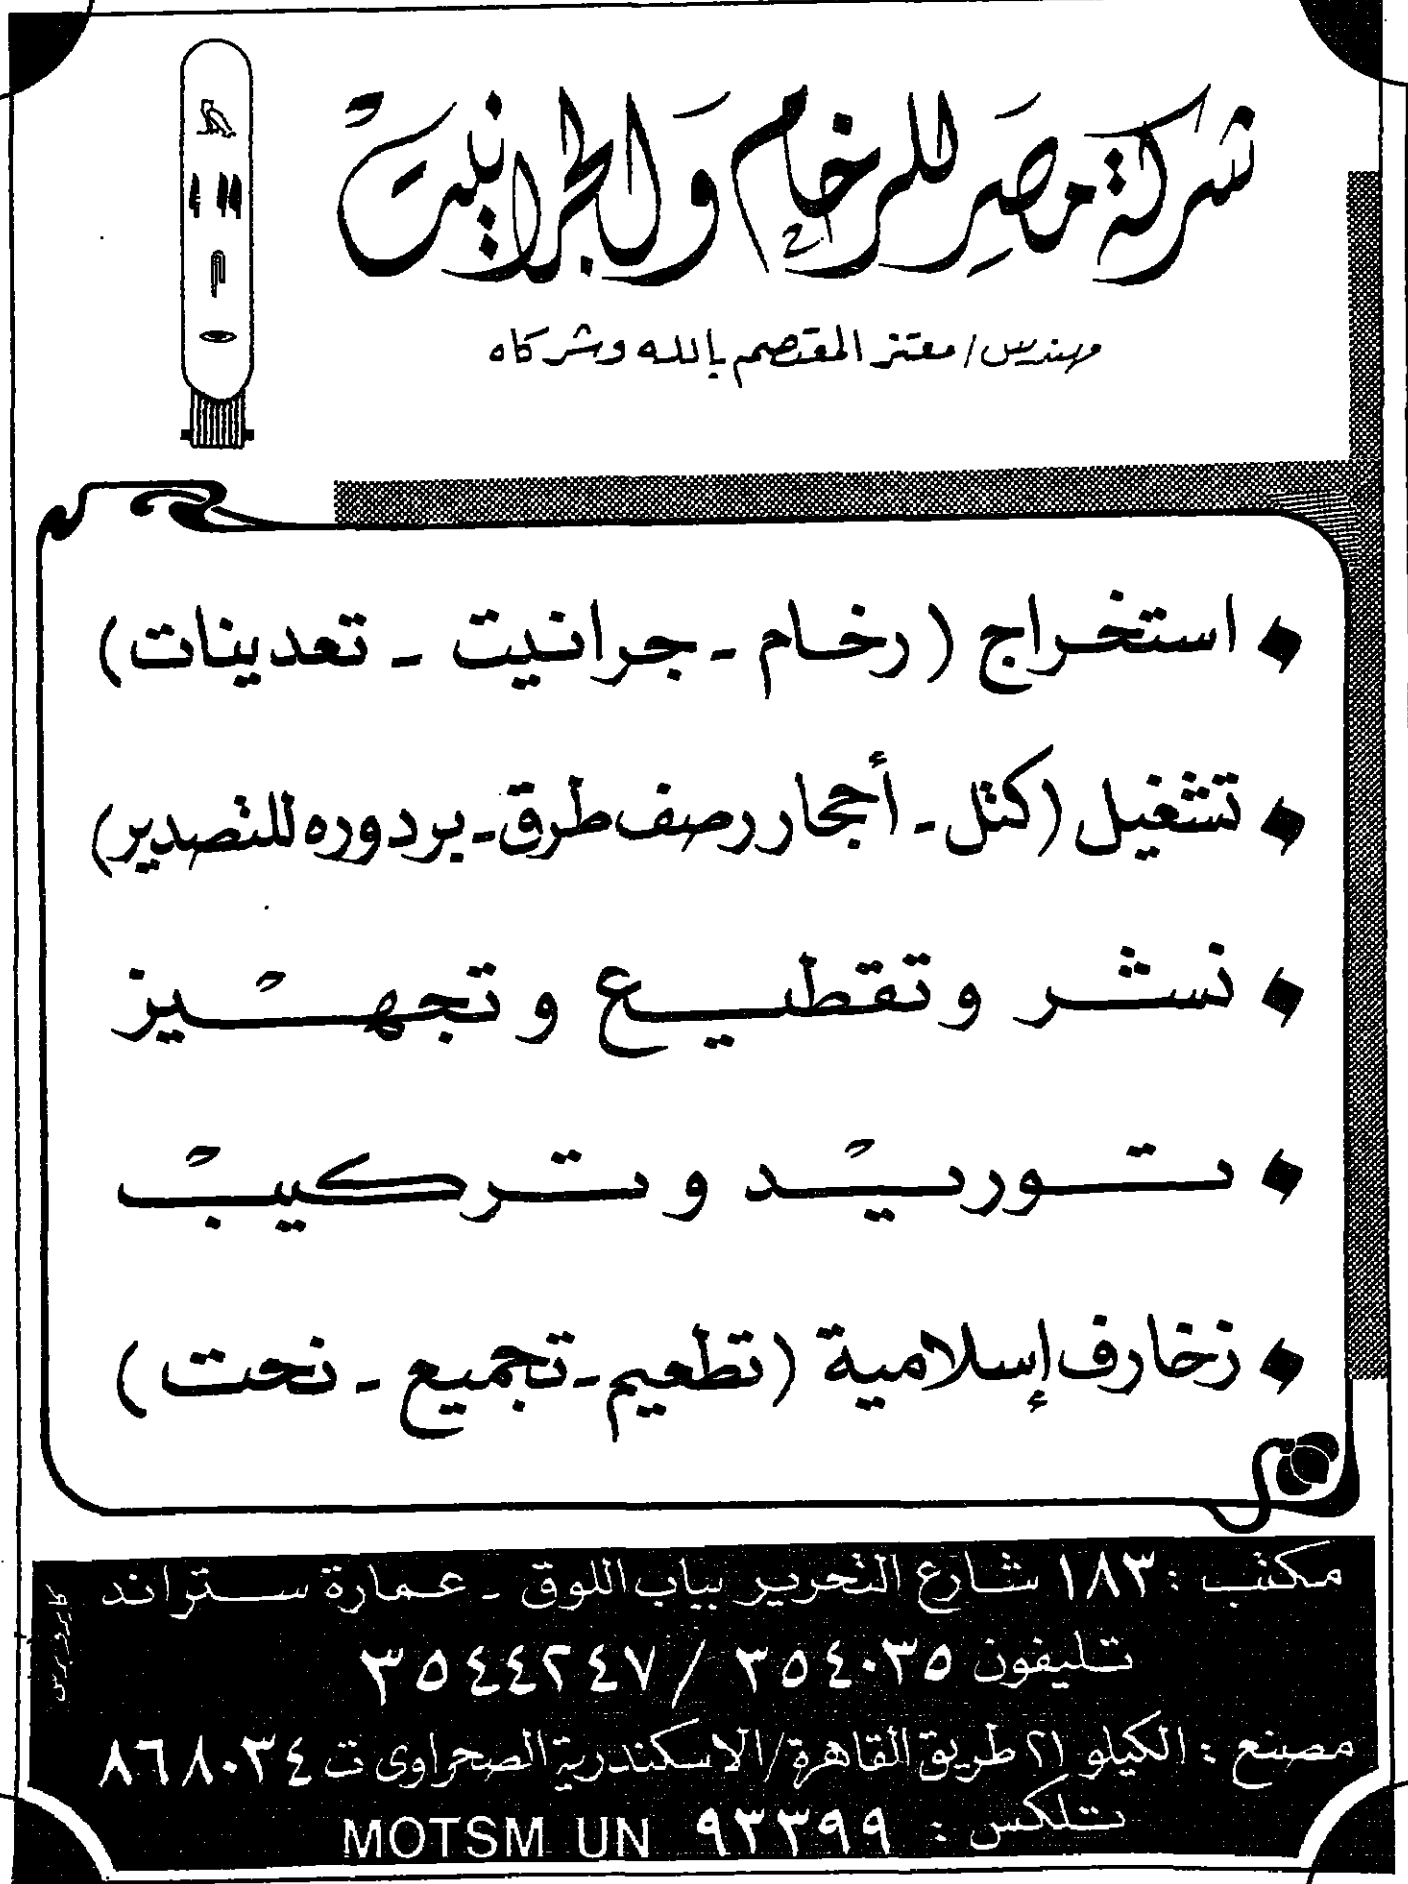 شركة مصر للرخام والجرانيت
مهندس / معتز المعتصم بالله وشركاه
استخراج ( رخام - جرانيت - تعدينات )
تشغيل ( كتل - أحجار رصف طرق - بردوره للتصدير )
نشر وتقطيع وتجهيز
توريد وتركيب
زخارف إسلامية ( تطعيم - تجميع - نحت )
مكتب : ١٨٣ شارع التحرير بباب اللوق - عمارة ستراند
تليفون ٣٥٤٠٣٥ / ٣٥٤٤٢٤٧
مصنع : الكيلو ٢١ طريق القاهرة / الاسكندرية الصحراوى ت ٨٦٨٠٣٤
تلكس : ٩٣٣٩٩ MOTSM UN